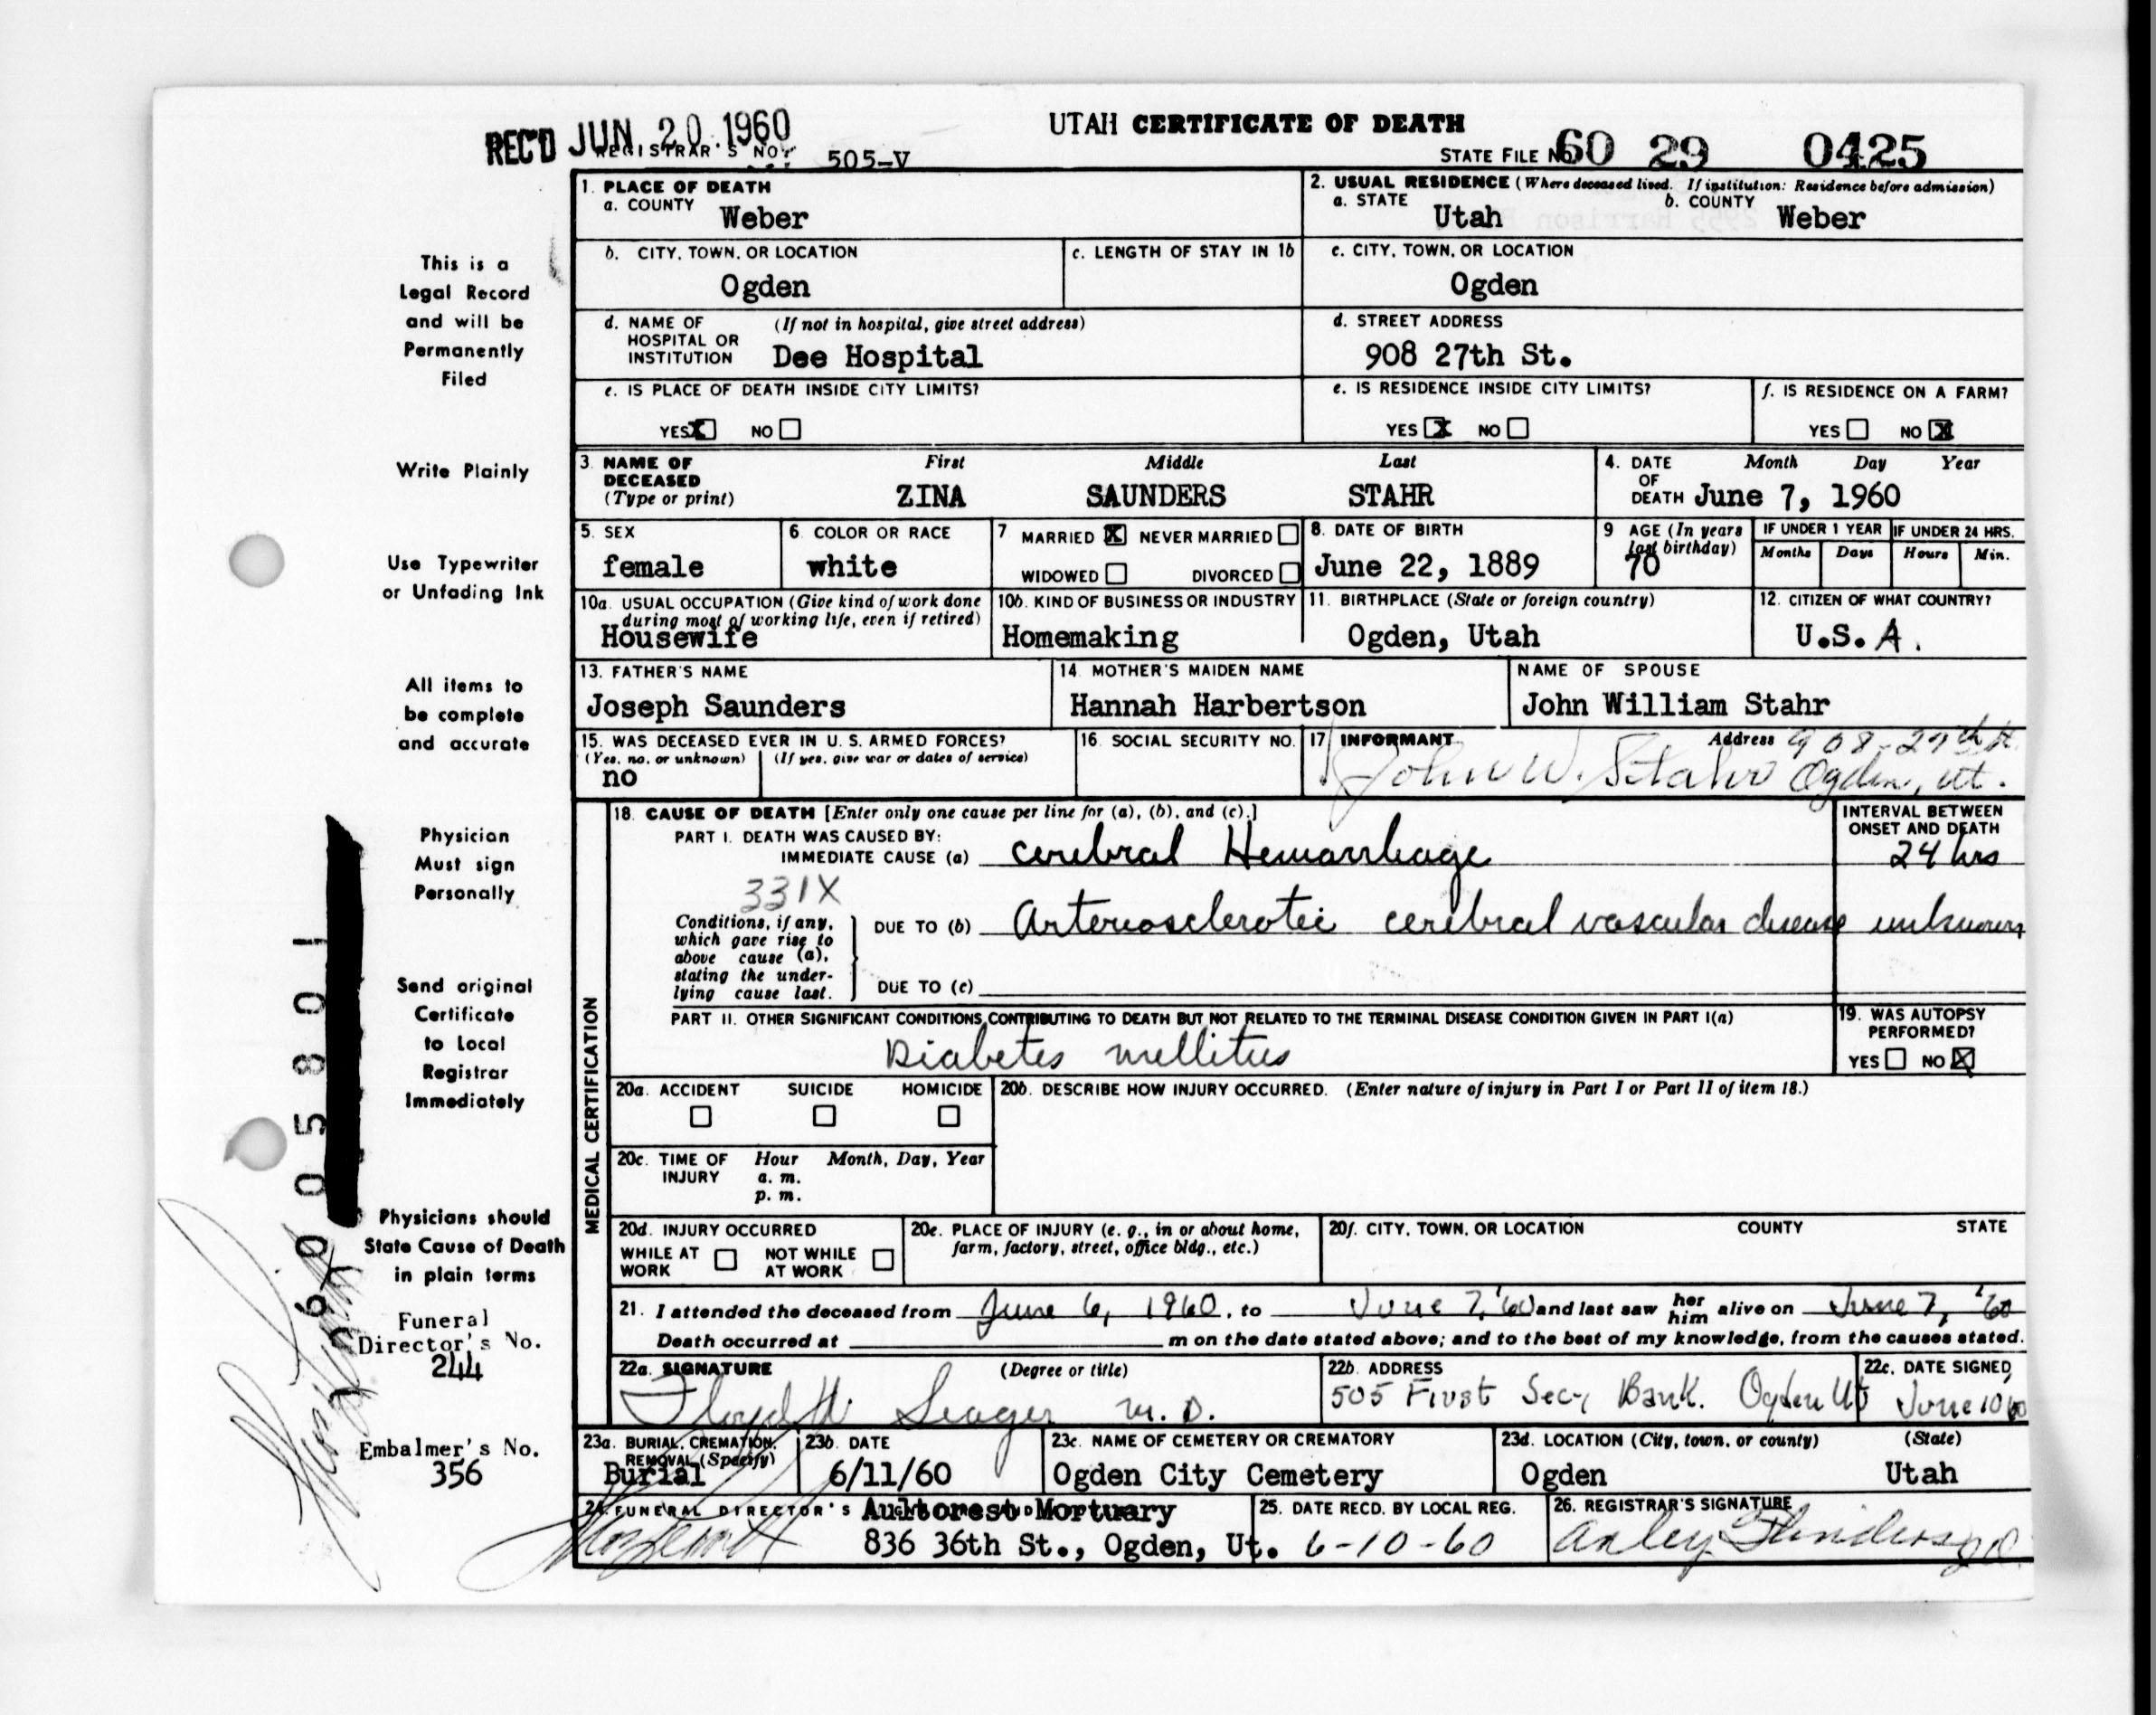 UTAH CERTIFICATE OF DEATH
REC'D JUN 20 1960
REGISTRAR'S NO. 505-V
STATE FILE NO. 60 29 0425
This is a
Legal Record
and will be
Permanently
Filed
Write Plainly
Use Typewriter
or Unfading Ink
All items to
be complete
and accurate
Physician
Must sign
Personally
Send original
Certificate
to Local
Registrar
Immediately
Physicians should
State Cause of Death
in plain terms
Funeral
Director's No.
244
Embalmer's No.
356
1. PLACE OF DEATH
a. COUNTY Weber
2. USUAL RESIDENCE (Where deceased lived. If institution: Residence before admission)
a. STATE Utah b. COUNTY Weber
b. CITY, TOWN, OR LOCATION
Ogden
c. LENGTH OF STAY IN 1b
c. CITY, TOWN, OR LOCATION
Ogden
d. NAME OF HOSPITAL OR INSTITUTION (If not in hospital, give street address)
Dee Hospital
d. STREET ADDRESS
908 27th St.
e. IS PLACE OF DEATH INSIDE CITY LIMITS?
YES X NO
e. IS RESIDENCE INSIDE CITY LIMITS?
YES X NO
f. IS RESIDENCE ON A FARM?
YES NO X
3. NAME OF DECEASED (Type or print) First Middle Last
ZINA SAUNDERS STAHR
4. DATE OF DEATH Month Day Year
June 7, 1960
5. SEX
female
6. COLOR OR RACE
white
7 MARRIED X NEVER MARRIED
WIDOWED DIVORCED
8. DATE OF BIRTH
June 22, 1889
9 AGE (In years last birthday)
70
IF UNDER 1 YEAR
Months Days
IF UNDER 24 HRS.
Hours Min.
10a. USUAL OCCUPATION (Give kind of work done during most of working life, even if retired)
Housewife
10b. KIND OF BUSINESS OR INDUSTRY
Homemaking
11. BIRTHPLACE (State or foreign country)
Ogden, Utah
12. CITIZEN OF WHAT COUNTRY?
U.S.A.
13. FATHER'S NAME
Joseph Saunders
14. MOTHER'S MAIDEN NAME
Hannah Harbertson
NAME OF SPOUSE
John William Stahr
15. WAS DECEASED EVER IN U. S. ARMED FORCES?
(Yes, no, or unknown) (If yes, give war or dates of service)
no
16. SOCIAL SECURITY NO.
17. INFORMANT Address 908-27th St.
John W. Stahr Ogden, Ut.
MEDICAL CERTIFICATION
18. CAUSE OF DEATH [Enter only one cause per line for (a), (b), and (c).]
INTERVAL BETWEEN ONSET AND DEATH
PART I. DEATH WAS CAUSED BY:
IMMEDIATE CAUSE (a) cerebral Hemorrhage 24 hrs
331X
Conditions, if any, which gave rise to above cause (a), stating the underlying cause last.
DUE TO (b) Arteriosclerotic cerebral vascular disease unknown
DUE TO (c)
PART II. OTHER SIGNIFICANT CONDITIONS CONTRIBUTING TO DEATH BUT NOT RELATED TO THE TERMINAL DISEASE CONDITION GIVEN IN PART I(a)
Diabetes mellitus
19. WAS AUTOPSY PERFORMED?
YES NO X
20a. ACCIDENT SUICIDE HOMICIDE
20b. DESCRIBE HOW INJURY OCCURRED. (Enter nature of injury in Part I or Part II of item 18.)
20c. TIME OF INJURY Hour Month, Day, Year
a. m.
p. m.
20d. INJURY OCCURRED
WHILE AT WORK NOT WHILE AT WORK
20e. PLACE OF INJURY (e. g., in or about home, farm, factory, street, office bldg., etc.)
20f. CITY, TOWN, OR LOCATION COUNTY STATE
21. I attended the deceased from June 6, 1960, to June 7, '60 and last saw her him alive on June 7, '60
Death occurred at m on the date stated above; and to the best of my knowledge, from the causes stated.
22a. SIGNATURE (Degree or title)
Floyd W. Seager M.D.
22b. ADDRESS
505 First Sec. Bank. Ogden Ut
22c. DATE SIGNED
June 10 '60
23a. BURIAL, CREMATION, REMOVAL (Specify)
Burial
23b. DATE
6/11/60
23c. NAME OF CEMETERY OR CREMATORY
Ogden City Cemetery
23d. LOCATION (City, town, or county) (State)
Ogden Utah
24. FUNERAL DIRECTOR'S
Aultorest Mortuary
836 36th St., Ogden, Ut.
25. DATE RECD. BY LOCAL REG.
6-10-60
26. REGISTRAR'S SIGNATURE
60005801